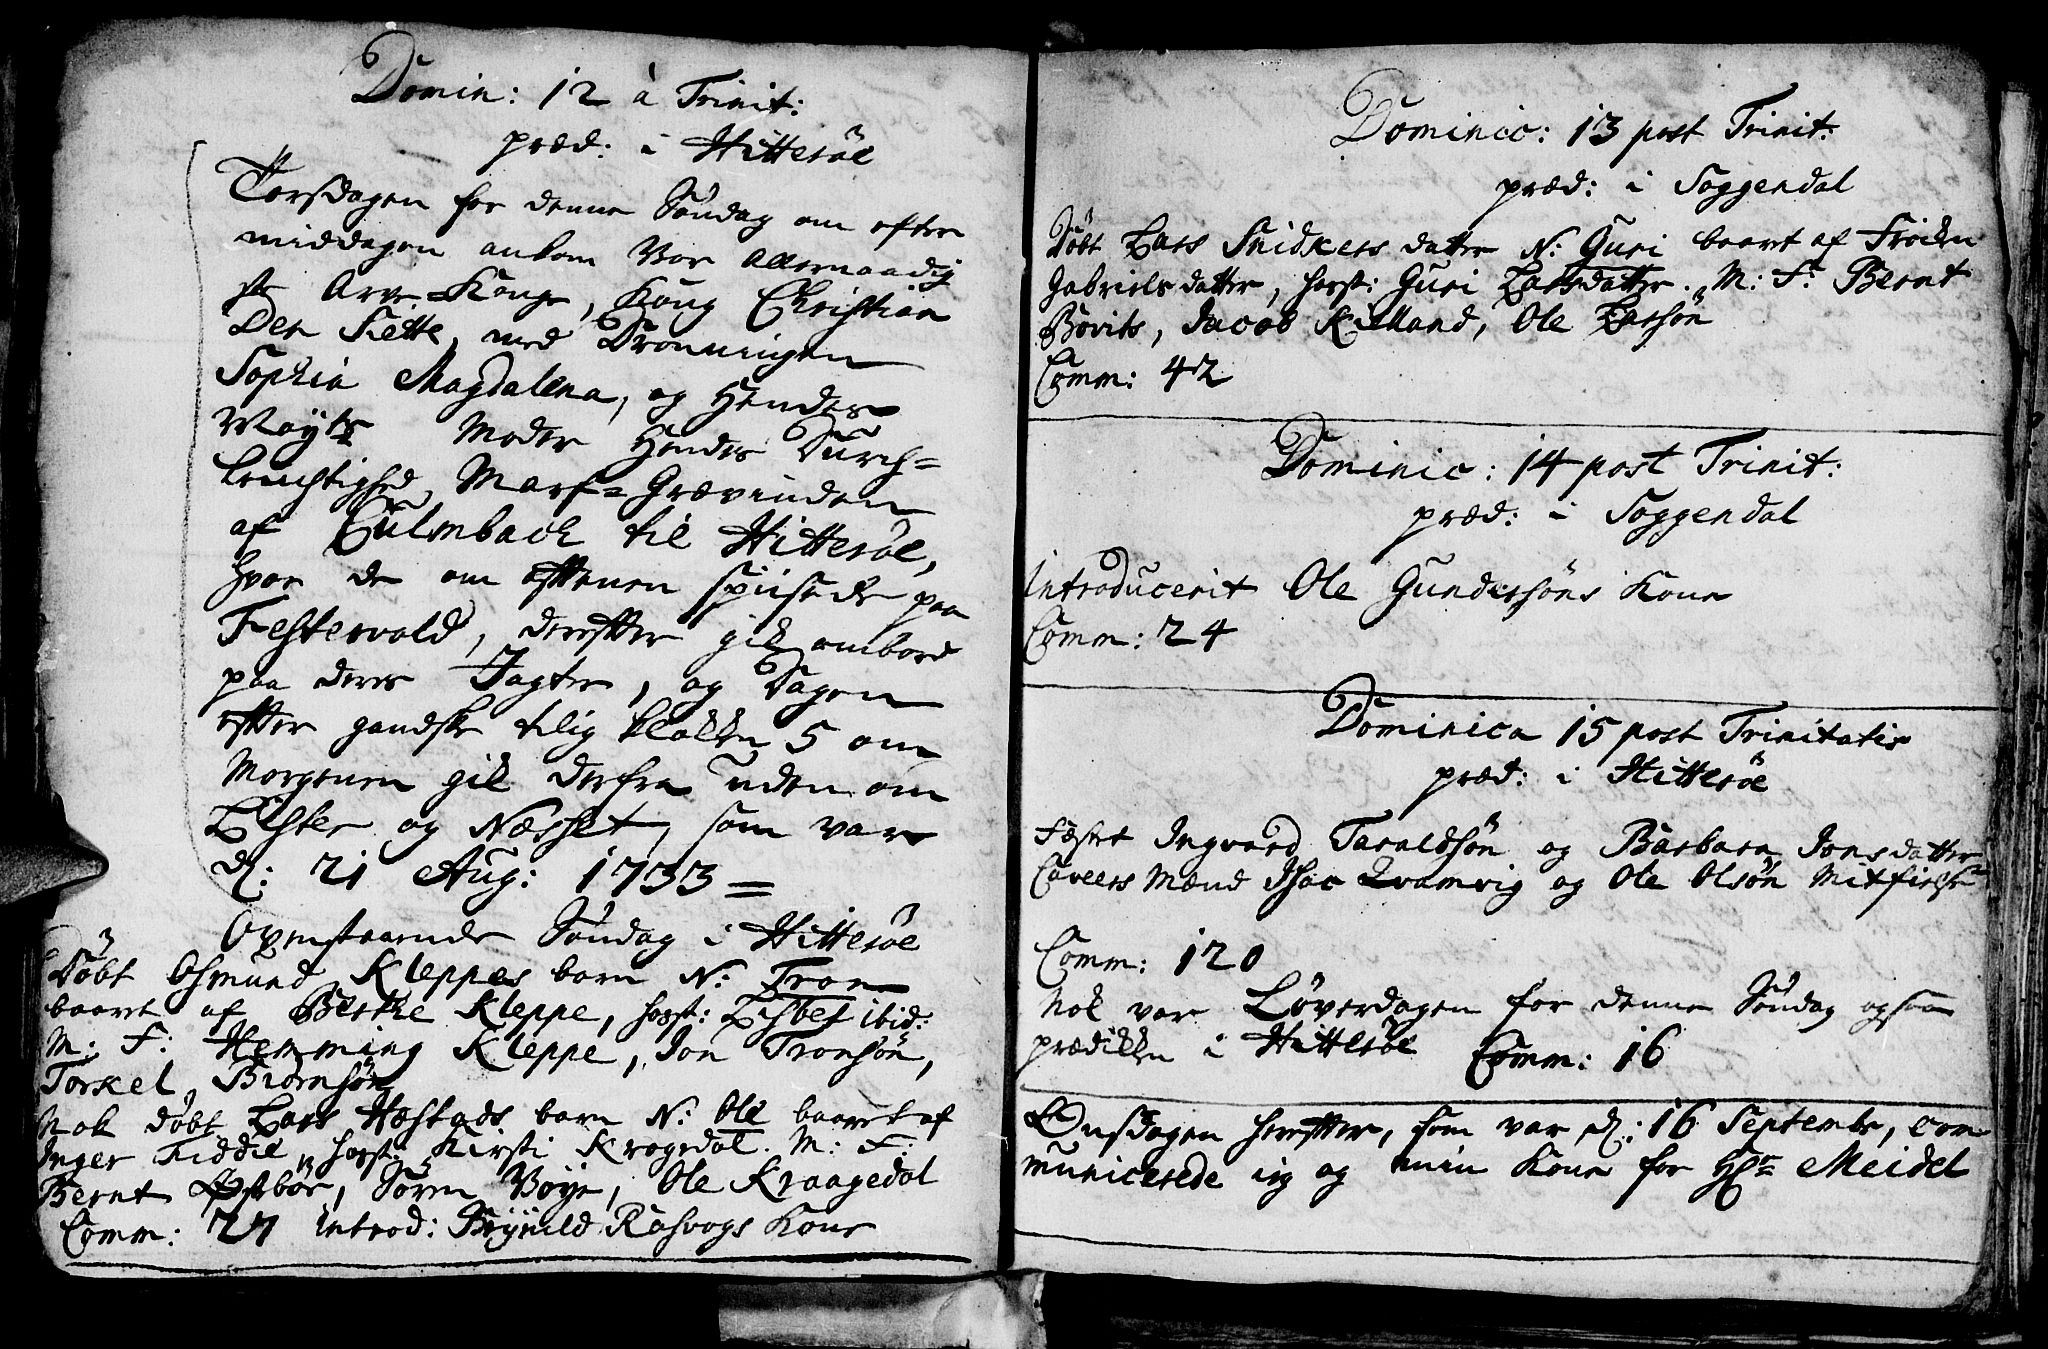 Domin: 12 à Trinit:
præd: i Hitterøe
Torsdagen for denne Søndag om efter
middagen ankom Vor Allernaadig
ste Arve-Konge, Kong Christian
Den Siette, med Dronningen
Sophia Magdalena, og Hendes
Mayts Moder Hendes Durch-
leuchtighed Marf-Grævinden
af Culmbach til Hitterøe,
hvor de om afftenen spiisede paa
Festervold, derefter gik ombord
paa deres Jagter, og Dagen
effter gandske tilig klokken 5 om
Morgenen gik derfra uden om
Lister og Nesset, som var
d: 21 Aug: 1733 =
Ovenstaaende Søndag i Hitterøe
Døbt Osmund Kleppes barn N: Tron
baaret af Berthe Kleppe, hosst: Lisbet ibid:
M: F: Hemming Kleppe, Jon Tronsøn,
Torkel Biørnsøn
Nok døbt Lars Hæstads barn N: Ole baaret af
Inger Fiddie, hosst: Kirsti Kragedal. M: F:
Bernt Østbøe, Søren Bøye, Ole Kraagedal
Comm: 27 Introd: Brynild Rasvogs Kone
Dominic: 13 post Trinit:
præd: i Soggendal
Døbt Lars Snidkers datter N: Guri baaret af Frøken
Gabrielsdatter, hosst: Guri Larsdatter. M: F: Bernt
Bovits, Jacob Kielland, Ole Larsøn
Comm: 42
Dominic: 14 post Trinit:
præd: i Soggendal
Introducerit Ole Gundersøns Kone
Comm: 24
Dominica 15 post Trinitatis
præd: i Hitterøe
Fæstet Ingvord Taraldsøn og Barbara Jonsdatter
Caveers Mænd Isac Qvamvig og Ole Olsøn Mitfierhe
Comm: 120
Nok var Løverdagen for denne Søndag ogsaa
prædikken i Hitterøe Comm: 16
Onsdagen hereffter, som var d: 16 Septembr, com
municerede ieg og min Kone for Hr Meidel